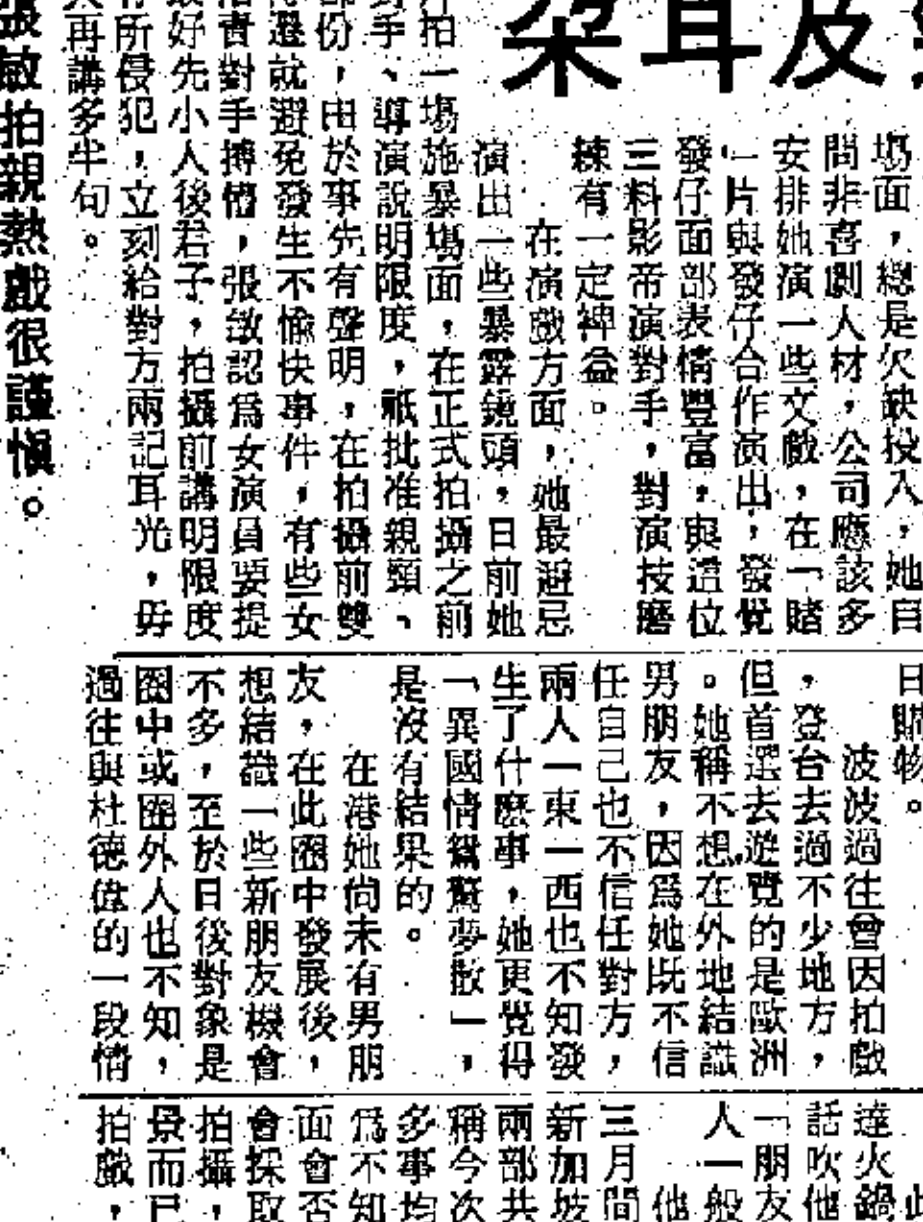 耳及
場面，總是欠缺投入，她自
問非喜劇人材，公司應該多
安排她演一些文戲，在「賭
」片與發仔合作演出，發覺
發仔面部表情豐富，與這位
三料影帝演對手，對演技磨
練有一定裨益。
在演戲方面，她最避忌
演出一些暴露鏡頭，日前她
拍一場施暴場面，在正式拍攝之前
手、導演說明限度，祇批准親頸、
份，由於事先有聲明，在拍攝前雙
選就避免發生不愉快事件，有些女
責對手搏懵，張敏認爲女演員要提
最好先小人後君子，拍攝前講明限度
所侵犯，立刻給對方兩記耳光，毋
再講多半句。
張敏拍親熱戲很謹愼。
日購物。
波波過往曾因拍戲
，登台去過不少地方，
但首選去遊覽的是歐洲
。她稱不想在外地結識
男朋友，因爲她旣不信
任自己也不信任對方，
兩人一東一西也不知發
生了什麽事，她更覺得
「異國情鴛鴦夢散」，
是沒有結果的。
在港她尚未有男朋
友，在此圈中發展後，
想結識一些新朋友機會
不多，至於日後對象是
圈中或圈外人也不知，
過往與杜德偉的一段情
達火鍋
話吹他
「朋友
人一般
他
三月間
新加坡
兩部共
稱今次
多事均
爲不知
面會否
會採取
拍攝，
景而已
拍戲，